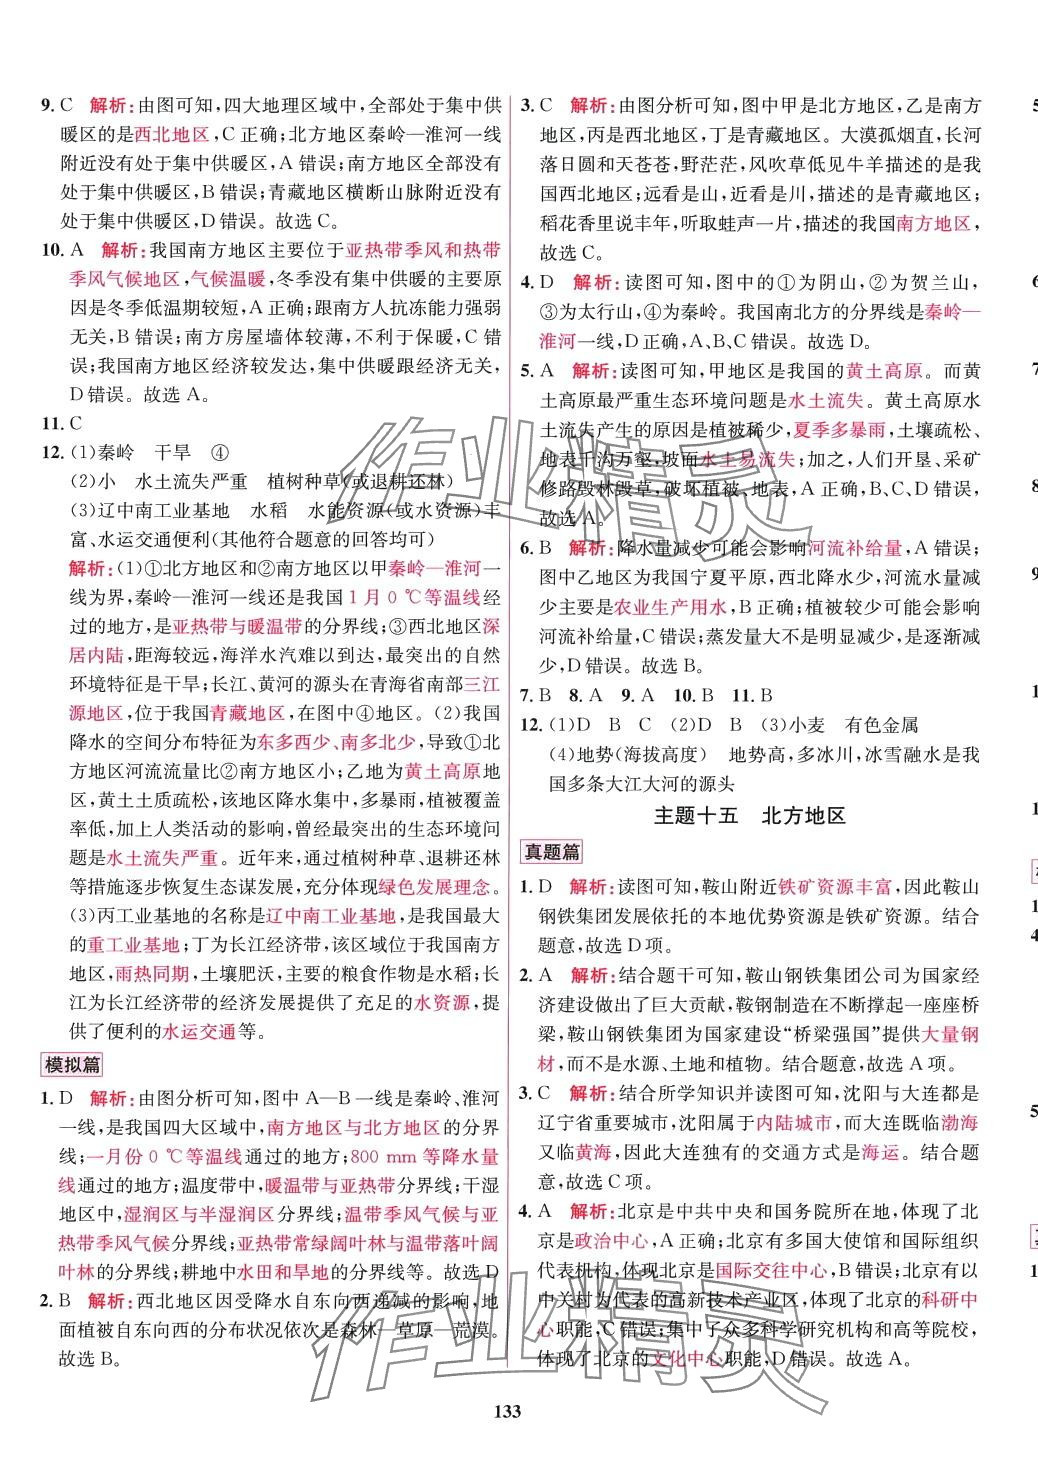 9. C 解析:由图可知,四大地理区域中,全部处于集中供
暖区的是西北地区,C 正确;北方地区秦岭—淮河一线
附近没有处于集中供暖区,A 错误;南方地区全部没有
处于集中供暖区,B 错误;青藏地区横断山脉附近没有
处于集中供暖区,D 错误。故选 C。
10. A 解析:我国南方地区主要位于亚热带季风和热带
季风气候地区,气候温暖,冬季没有集中供暖的主要原
因是冬季低温期较短,A 正确;跟南方人抗冻能力强弱
无关,B 错误;南方房屋墙体较薄,不利于保暖,C 错
误;我国南方地区经济较发达,集中供暖跟经济无关,
D 错误。故选 A。
11. C
12. (1)秦岭 干旱 ④
(2)小 水土流失严重 植树种草(或退耕还林)
(3)辽中南工业基地 水稻 水能资源(或水资源)丰
富、水运交通便利(其他符合题意的回答均可)
解析:(1)①北方地区和②南方地区以甲秦岭—淮河一
线为界,秦岭—淮河一线还是我国 1 月 0 ℃等温线经
过的地方,是亚热带与暖温带的分界线;③西北地区深
居内陆,距海较远,海洋水汽难以到达,最突出的自然
环境特征是干旱;长江、黄河的源头在青海省南部三江
源地区,位于我国青藏地区,在图中④地区。(2)我国
降水的空间分布特征为东多西少、南多北少,导致①北
方地区河流流量比②南方地区小;乙地为黄土高原地
区,黄土土质疏松,该地区降水集中,多暴雨,植被覆盖
率低,加上人类活动的影响,曾经最突出的生态环境问
题是水土流失严重。近年来,通过植树种草、退耕还林
等措施逐步恢复生态谋发展,充分体现绿色发展理念。
(3)丙工业基地的名称是辽中南工业基地,是我国最大
的重工业基地;丁为长江经济带,该区域位于我国南方
地区,雨热同期,土壤肥沃,主要的粮食作物是水稻;长
江为长江经济带的经济发展提供了充足的水资源,提
供了便利的水运交通等。
模拟篇
1. D 解析:由图分析可知,图中 A—B 一线是秦岭、淮河
一线,是我国四大区域中,南方地区与北方地区的分界
线;一月份 0 ℃等温线通过的地方;800 mm 等降水量
线通过的地方;温度带中,暖温带与亚热带分界线;干湿
地区中,湿润区与半湿润区分界线;温带季风气候与亚
热带季风气候分界线;亚热带常绿阔叶林与温带落叶阔
叶林的分界线;耕地中水田和旱地的分界线等。故选 D
2. B 解析:西北地区因受降水自东向西递减的影响,地
面植被自东向西的分布状况依次是森林—草原—荒漠。
故选 B。
3. C 解析:由图分析可知,图中甲是北方地区,乙是南方
地区,丙是西北地区,丁是青藏地区。大漠孤烟直,长河
落日圆和天苍苍,野茫茫,风吹草低见牛羊描述的是我
国西北地区;远看是山,近看是川,描述的是青藏地区;
稻花香里说丰年,听取蛙声一片,描述的我国南方地区,
故选 C。
4. D 解析:读图可知,图中的①为阴山,②为贺兰山,
③为太行山,④为秦岭。我国南北方的分界线是秦岭—
淮河一线,D 正确,A、B、C 错误。故选 D。
5. A 解析:读图可知,甲地区是我国的黄土高原。而黄
土高原最严重生态环境问题是水土流失。黄土高原水
土流失产生的原因是植被稀少,夏季多暴雨,土壤疏松、
地表千沟万壑,坡面水土易流失;加之,人们开垦、采矿
修路毁林毁草,破坏植被、地表,A 正确,B、C、D 错误,
故选 A。
6. B 解析:降水量减少可能会影响河流补给量,A 错误;
图中乙地区为我国宁夏平原,西北降水少,河流水量减
少主要是农业生产用水,B 正确;植被较少可能会影响
河流补给量,C 错误;蒸发量大不是明显减少,是逐渐减
少,D 错误。故选 B。
7. B 8. A 9. A 10. B 11. B
12. (1)D B C (2)D B (3)小麦 有色金属
(4)地势(海拔高度) 地势高,多冰川,冰雪融水是我
国多条大江大河的源头
主题十五 北方地区
真题篇
1. D 解析:读图可知,鞍山附近铁矿资源丰富,因此鞍山
钢铁集团发展依托的本地优势资源是铁矿资源。结合
题意,故选 D 项。
2. A 解析:结合题干可知,鞍山钢铁集团公司为国家经
济建设做出了巨大贡献,鞍钢制造在不断撑起一座座桥
梁,鞍山钢铁集团为国家建设“桥梁强国”提供大量钢
材,而不是水源、土地和植物。结合题意,故选 A 项。
3. C 解析:结合所学知识并读图可知,沈阳与大连都是
辽宁省重要城市,沈阳属于内陆城市,而大连既临渤海
又临黄海,因此大连独有的交通方式是海运。结合题
意,故选 C 项。
4. A 解析:北京是中共中央和国务院所在地,体现了北
京是政治中心,A 正确;北京有多国大使馆和国际组织
代表机构,体现北京是国际交往中心,B 错误;北京有以
中关村为代表的高新技术产业区,体现了北京的科研中
心职能,C 错误;集中了众多科学研究机构和高等院校,
体现了北京的文化中心职能,D 错误。故选 A。
133
作业精灵
作业精灵